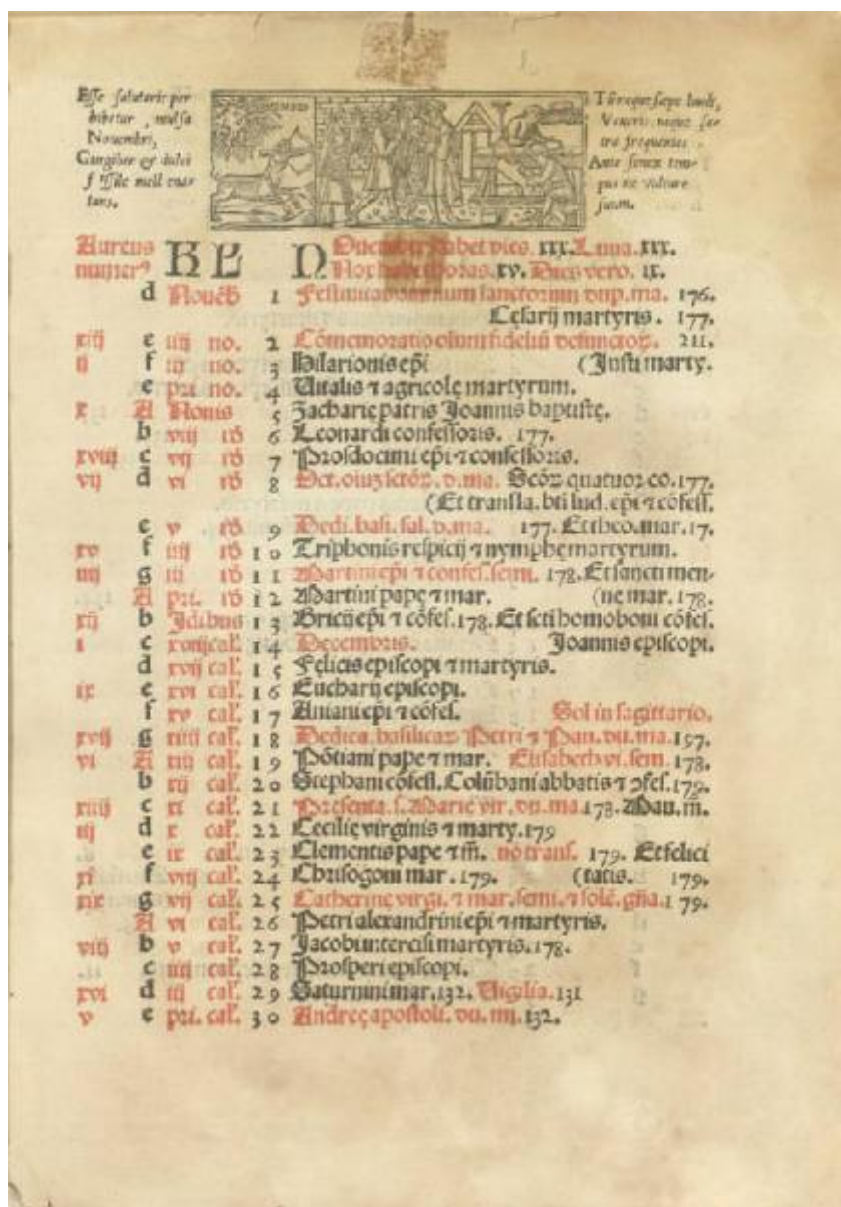 Esse salutaris per
hibetur, mulsa
Novembri,
Gingiber & dulci
mell
Túneque sæpe
Veneris neque
frequentes
Ante senex tem-
suum.
Aureus
numerꝰ KL
Nouember habet dies. xxx. Luna. xxx.
Nox habet horas. xv. Dies vero. ix.
d Nouẽb 1 Festiuitas omnium sanctorum dup. ma. 176.
Cęsarij martyris. 177.
xiij e iiij no. 2 Cõmemoratio oĩum fidelium defunctoꝝ. 211.
ij f iij no. 3 Hilarionis epĩ (Justi marty.
e pri no. 4 Uitalis ⁊ agricolę martyrum.
x A Nonis 5 Zacharię patris Joannis baptistę.
b viij id 6 Leonardi confessoris. 177.
xviij c vij id 7 Prosdocimi epĩ ⁊ confessoris.
vij d vi id 8 Oct. oĩuʒ sctõꝝ. d. ma. Scõꝝ quatuor co. 177.
(Et transla. bti lud. epĩ ⁊ cõfess.
e v id 9 Dedi. basi. sal. d. ma. 177. Et theo. mar. 17.
xv f iiij id 10 Triphonis respicij ⁊ nymphę martyrum.
iiij g iii id 11 Martini epĩ ⁊ confes. semi. 178. Et sancti men-
A pri. id 12 Martini pape ⁊ mar. (ne mar. 178.
xij b Idibus 13 Bricij epĩ ⁊ cõfes. 178. Et scti homoboni cõfes.
i c xviij cal. 14 Decembris. Joannis episcopi.
d xvij cal. 15 Felicis episcopi ⁊ martyris.
ix e xvi cal. 16 Eucharij episcopi.
f xv cal. 17 Aniani epĩ ⁊ cõfes. Sol in sagittario.
xvij g xiiij cal. 18 Dedica. basilicaꝝ Petri ⁊ Pau. du. ma. 197.
vi A xiij cal. 19 Põtiani pape ⁊ mar. Elisabeth vi. sem. 178.
b xij cal. 20 Stephani cõfess. Colũbani abbatis ⁊ ꝯfes. 179.
xiiij c xi cal. 21 Presenta. s. Marię vir. du. ma 178. Mau. m̃.
iij d x cal. 22 Cecilię virginis ⁊ marty. 179
e ix cal. 23 Clementis pape ⁊ m̃. no trans. 179. Et felici
xi f viij cal. 24 Chrisogoni mar. 179. (tatis. 179.
xix g vij cal. 25 Catherinę virgi. ⁊ mar. semi. ⁊ solẽ. gña. 179.
A vi cal. 26 Petri alexandrini epĩ ⁊ martyris.
viij b v cal. 27 Jacobi intercisi martyris. 178.
c iiij cal. 28 Prosperi episcopi.
xvi d iij cal. 29 Saturnini mar. 132. Uigilia. 131
v e pri. cal. 30 Andreę apostoli. du. mi. 132.